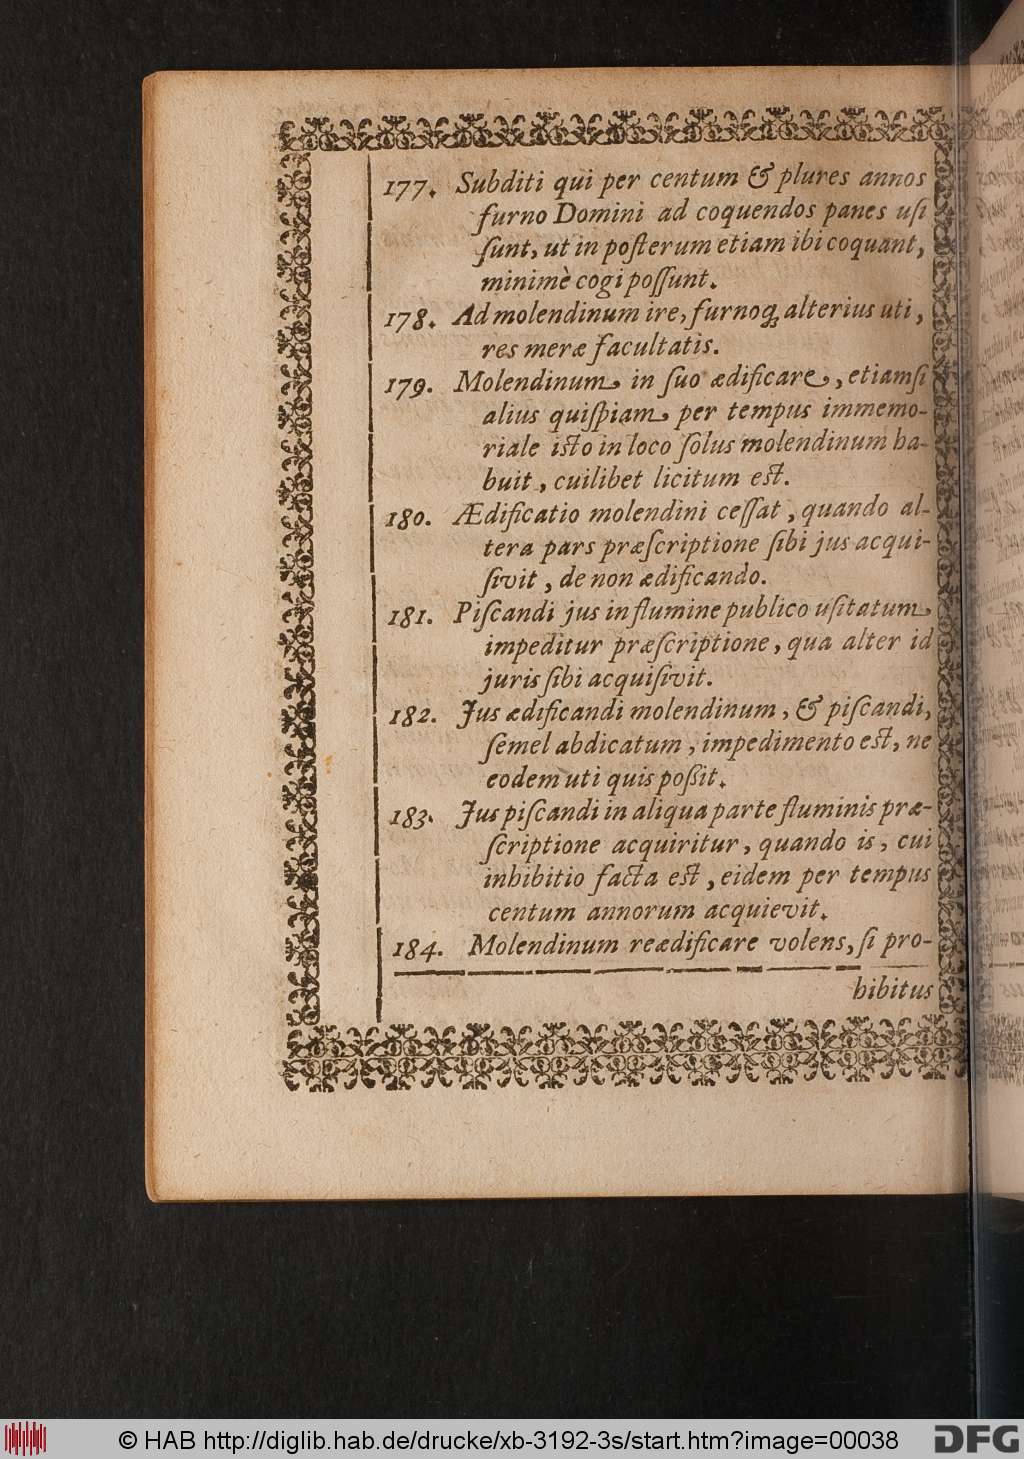 177. Subditi qui per centum & plures annos
furno Domini ad coquendos panes uſi
ſunt, ut in poſterum etiam ibi coquant,
minimè cogi poſſunt.
178. Ad molendinum ire, furnoq́ alterius uti,
res meræ facultatis.
179. Molendinum in ſuo ædificare, etiamſi
alius quiſpiam per tempus immemo-
riale isto in loco ſolus molendinum ha-
buit, cuilibet licitum est.
180. Ædificatio molendini ceſſat, quando al-
tera pars præſcriptione ſibi jus acqui-
ſivit, de non ædificando.
181. Piſcandi jus in flumine publico uſitatum
impeditur præſcriptione, qua alter id
juris ſibi acquiſivit.
182. Jus ædificandi molendinum, & piſcandi,
ſemel abdicatum, impedimento est, ne
eodem uti quis poßit.
183. Jus piſcandi in aliqua parte fluminis præ-
ſcriptione acquiritur, quando is, cui
inhibitio facta est, eidem per tempus
centum annorum acquievit.
184. Molendinum reædificare volens, ſi pro-
hibitus
© HAB http://diglib.hab.de/drucke/xb-3192-3s/start.htm?image=00038
DFG